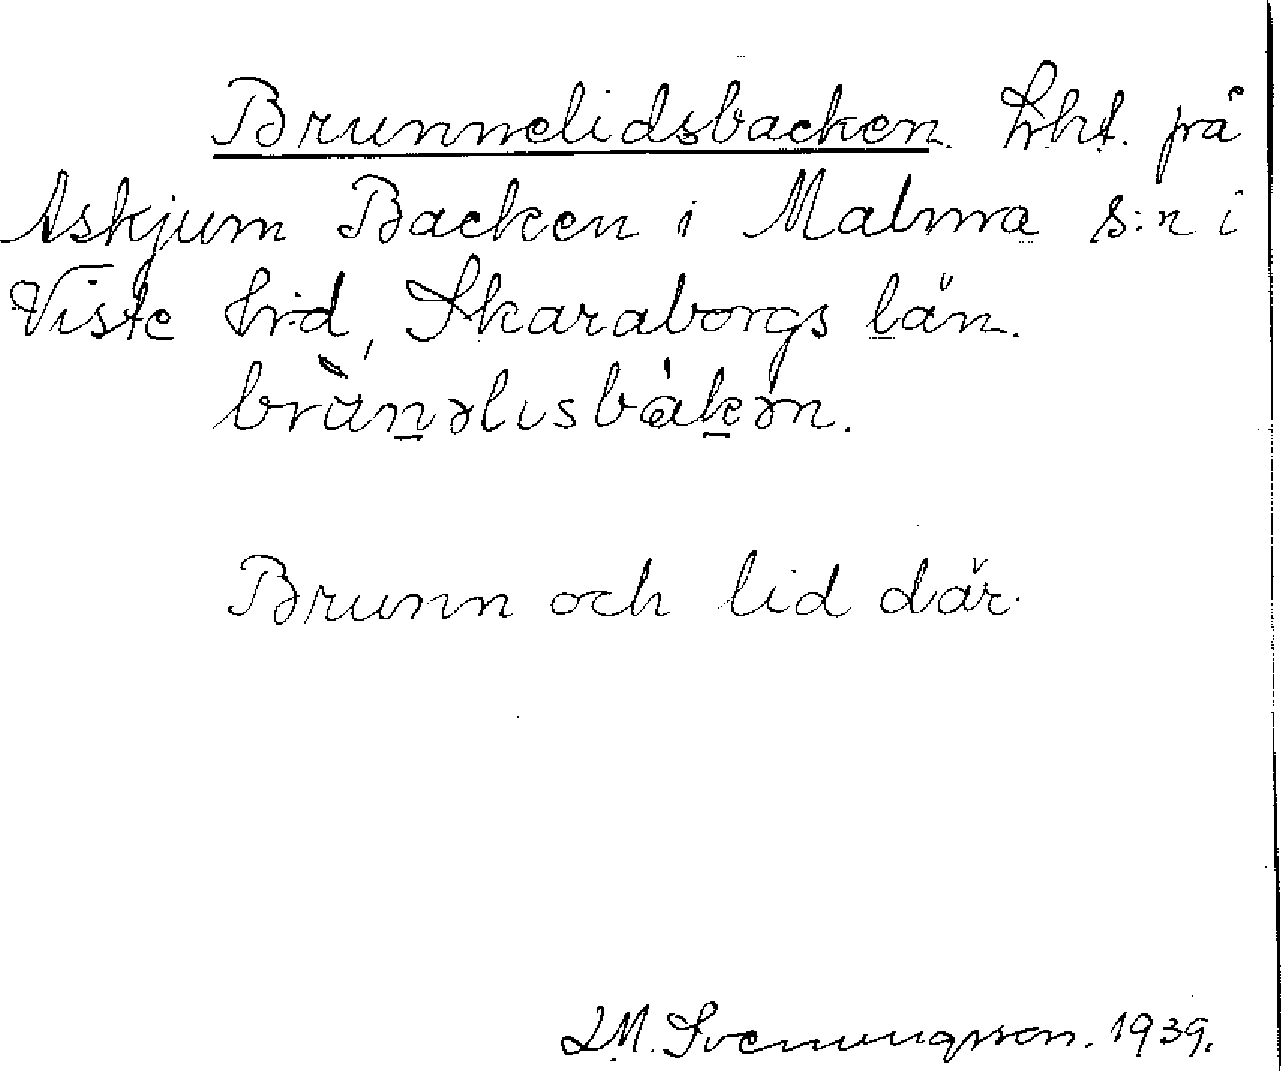 Brunnelidsbacken. Lht. på
Askjum Backen i Malma s:n i
Viste hrd, Skaraborgs län.
brùnəlisbákən.
Brunn och lid där.
J.M. Svenungsson. 1939.